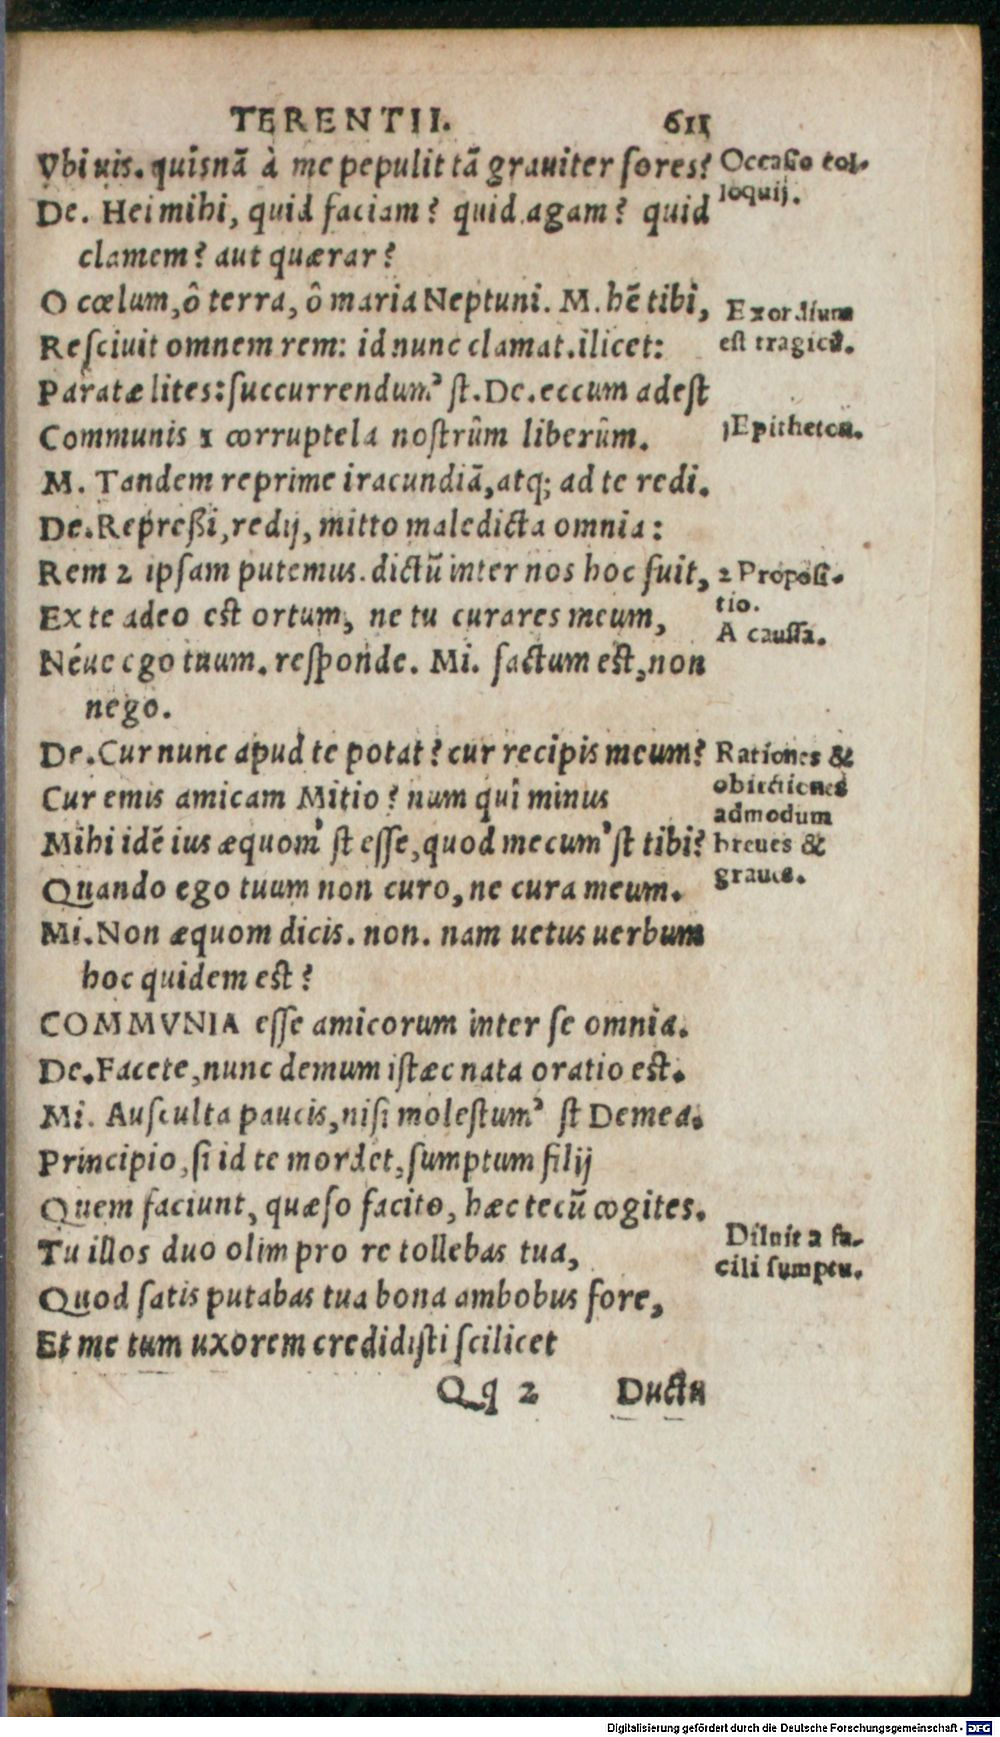 TERENTII. 611
Vbi uis. quîsnã à me pepulit tã grauiter fores?
De. Hei mihi, quid faciam? quid agam? quid
clamem? aut quærar?
O cœlum, ô terra, ô maria Neptuni. M. hẽ tibi,
Resciuit omnem rem: id nunc clamat. ilicet:
Paratæ lites: succurrendum' st. De. eccum adest
Communis 1 corruptela nostrûm liberûm.
M. Tandem reprime iracundiã, atq; ad te redi.
De. Repreßi, redij, mitto maledicta omnia:
Rem 2 ipsam putemus. dictũ inter nos hoc fuit,
Ex te adeo est ortum, ne tu curares meum,
Néue ego tuum. responde. Mi. factum est, non
nego.
De. Cur nunc apud te potat? cur recipis meum?
Cur emis amicam Mitio? num quî minus
Mihi idẽ ius æquom' st esse, quod mecum' st tibi?
Quando ego tuum non curo, ne cura meum.
Mi. Non æquom dicis. non. nam uetus uerbum
hoc quidem est?
COMMVNIA esse amicorum inter se omnia.
De. Facete, nunc demum istæc nata oratio est.
Mi. Ausculta paucis, nisi molestum' st Demea.
Principio, si id te mordet, sumptum filij
Quem faciunt, quæso facito, hæc tecũ cogites.
Tu illos duo olim pro re tollebas tua,
Quod satis putabas tua bona ambobus fore,
Et me tum uxorem credidisti scilicet
Qq 2 Ductu
Occasio col-
loquij.
Exordium
est tragicũ.
1 Epitheton.
2 Proposi-
tio.
A caussa.
Rationes &
obiectiones
admodum
breues &
graues.
Diluit a fa-
cili sumptu.
Digitalisierung gefördert durch die Deutsche Forschungsgemeinschaft - DFG